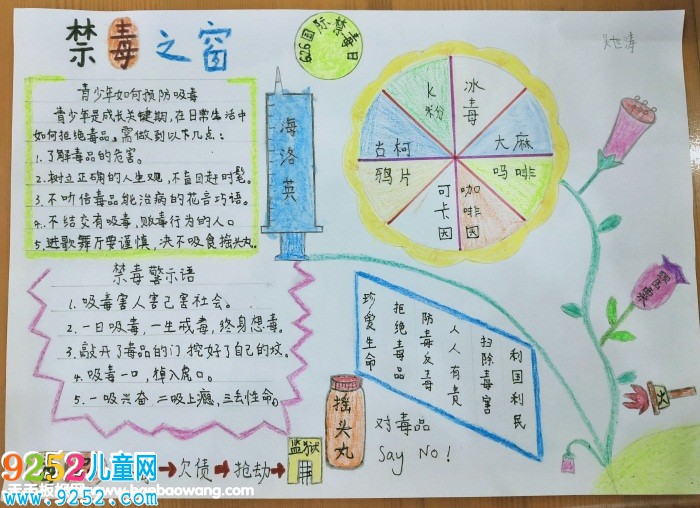 禁毒之窗
626国际禁毒日
青少年如何预防吸毒
青少年是成长关键期，在日常生活中
如何拒绝毒品，需做到以下几点：
1.了解毒品的危害。
2.树立正确的人生观，不盲目赶时髦。
3.不听信毒品能治病的花言巧语。
4.不结交有吸毒，贩毒行为的人。
5.进歌舞厅要谨慎，决不吸食摇头丸。
海洛英
K粉
冰毒
古柯
大麻
鸦片
吗啡
可卡因
咖啡因
罂粟
火
禁毒警示语
1.吸毒害人害己害社会。
2.一日吸毒，一生戒毒，终身想毒。
3.敲开了毒品的门，挖好了自己的坟。
4.吸毒一口，掉入虎口。
5.一吸兴奋 二吸上瘾，三去性命。
珍爱生命
拒绝毒品
防毒反毒
人人有责
扫除毒害
利国利民
摇头丸
对毒品
Say No!
→欠债→抢劫→
监狱
9252儿童网
www.9252.com